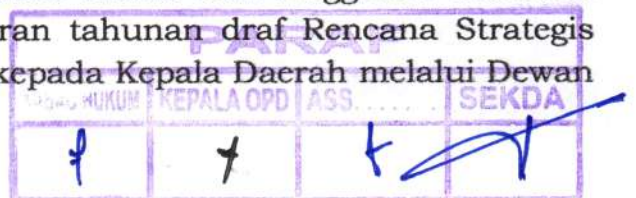 ran tahunan draf Rencana Strategis
PARAF
kepada Kepala Daerah melalui Dewan
HUKUM KEPALA OPD ASS....... SEKDA